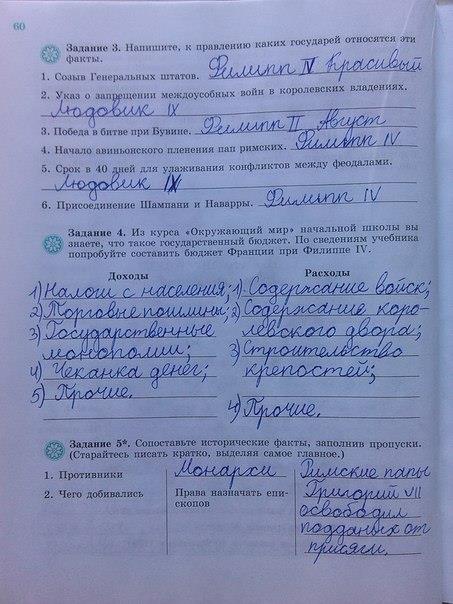 60
Задание 3. Напишите, к правлению каких государей относятся эти
факты.
1. Созыв Генеральных штатов. Филипп IV Красивый
2. Указ о запрещении междоусобных войн в королевских владениях.
Людовик IX
3. Победа в битве при Бувине. Филипп II Август
4. Начало авиньонского пленения пап римских. Филипп IV
5. Срок в 40 дней для улаживания конфликтов между феодалами.
Людовик IX
6. Присоединение Шампани и Наварры. Филипп IV
Задание 4. Из курса «Окружающий мир» начальной школы вы
знаете, что такое государственный бюджет. По сведениям учебника
попробуйте составить бюджет Франции при Филиппе IV.
Доходы
1) Налоги с населения;
2) Торговые пошлины;
3) Государственные
монополии;
4) Чеканка денег;
5) Прочие.
Расходы
1) Содержание войск;
2) Содержание коро-
левского двора;
3) Строительство
крепостей;
4) Прочие.
Задание 5*. Сопоставьте исторические факты, заполнив пропуски.
(Старайтесь писать кратко, выделяя самое главное.)
1. Противники Монархи Римские папы
2. Чего добивались Права назначать епи-
скопов
Григорий VII
освободил
подданых от
присяги.